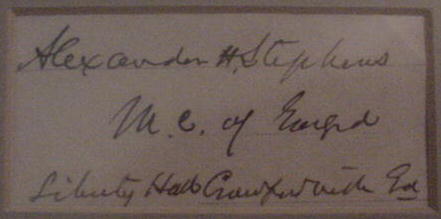 Alexander H. Stephens
M.C. of Georgia
Liberty Hall Crawfordville Ga